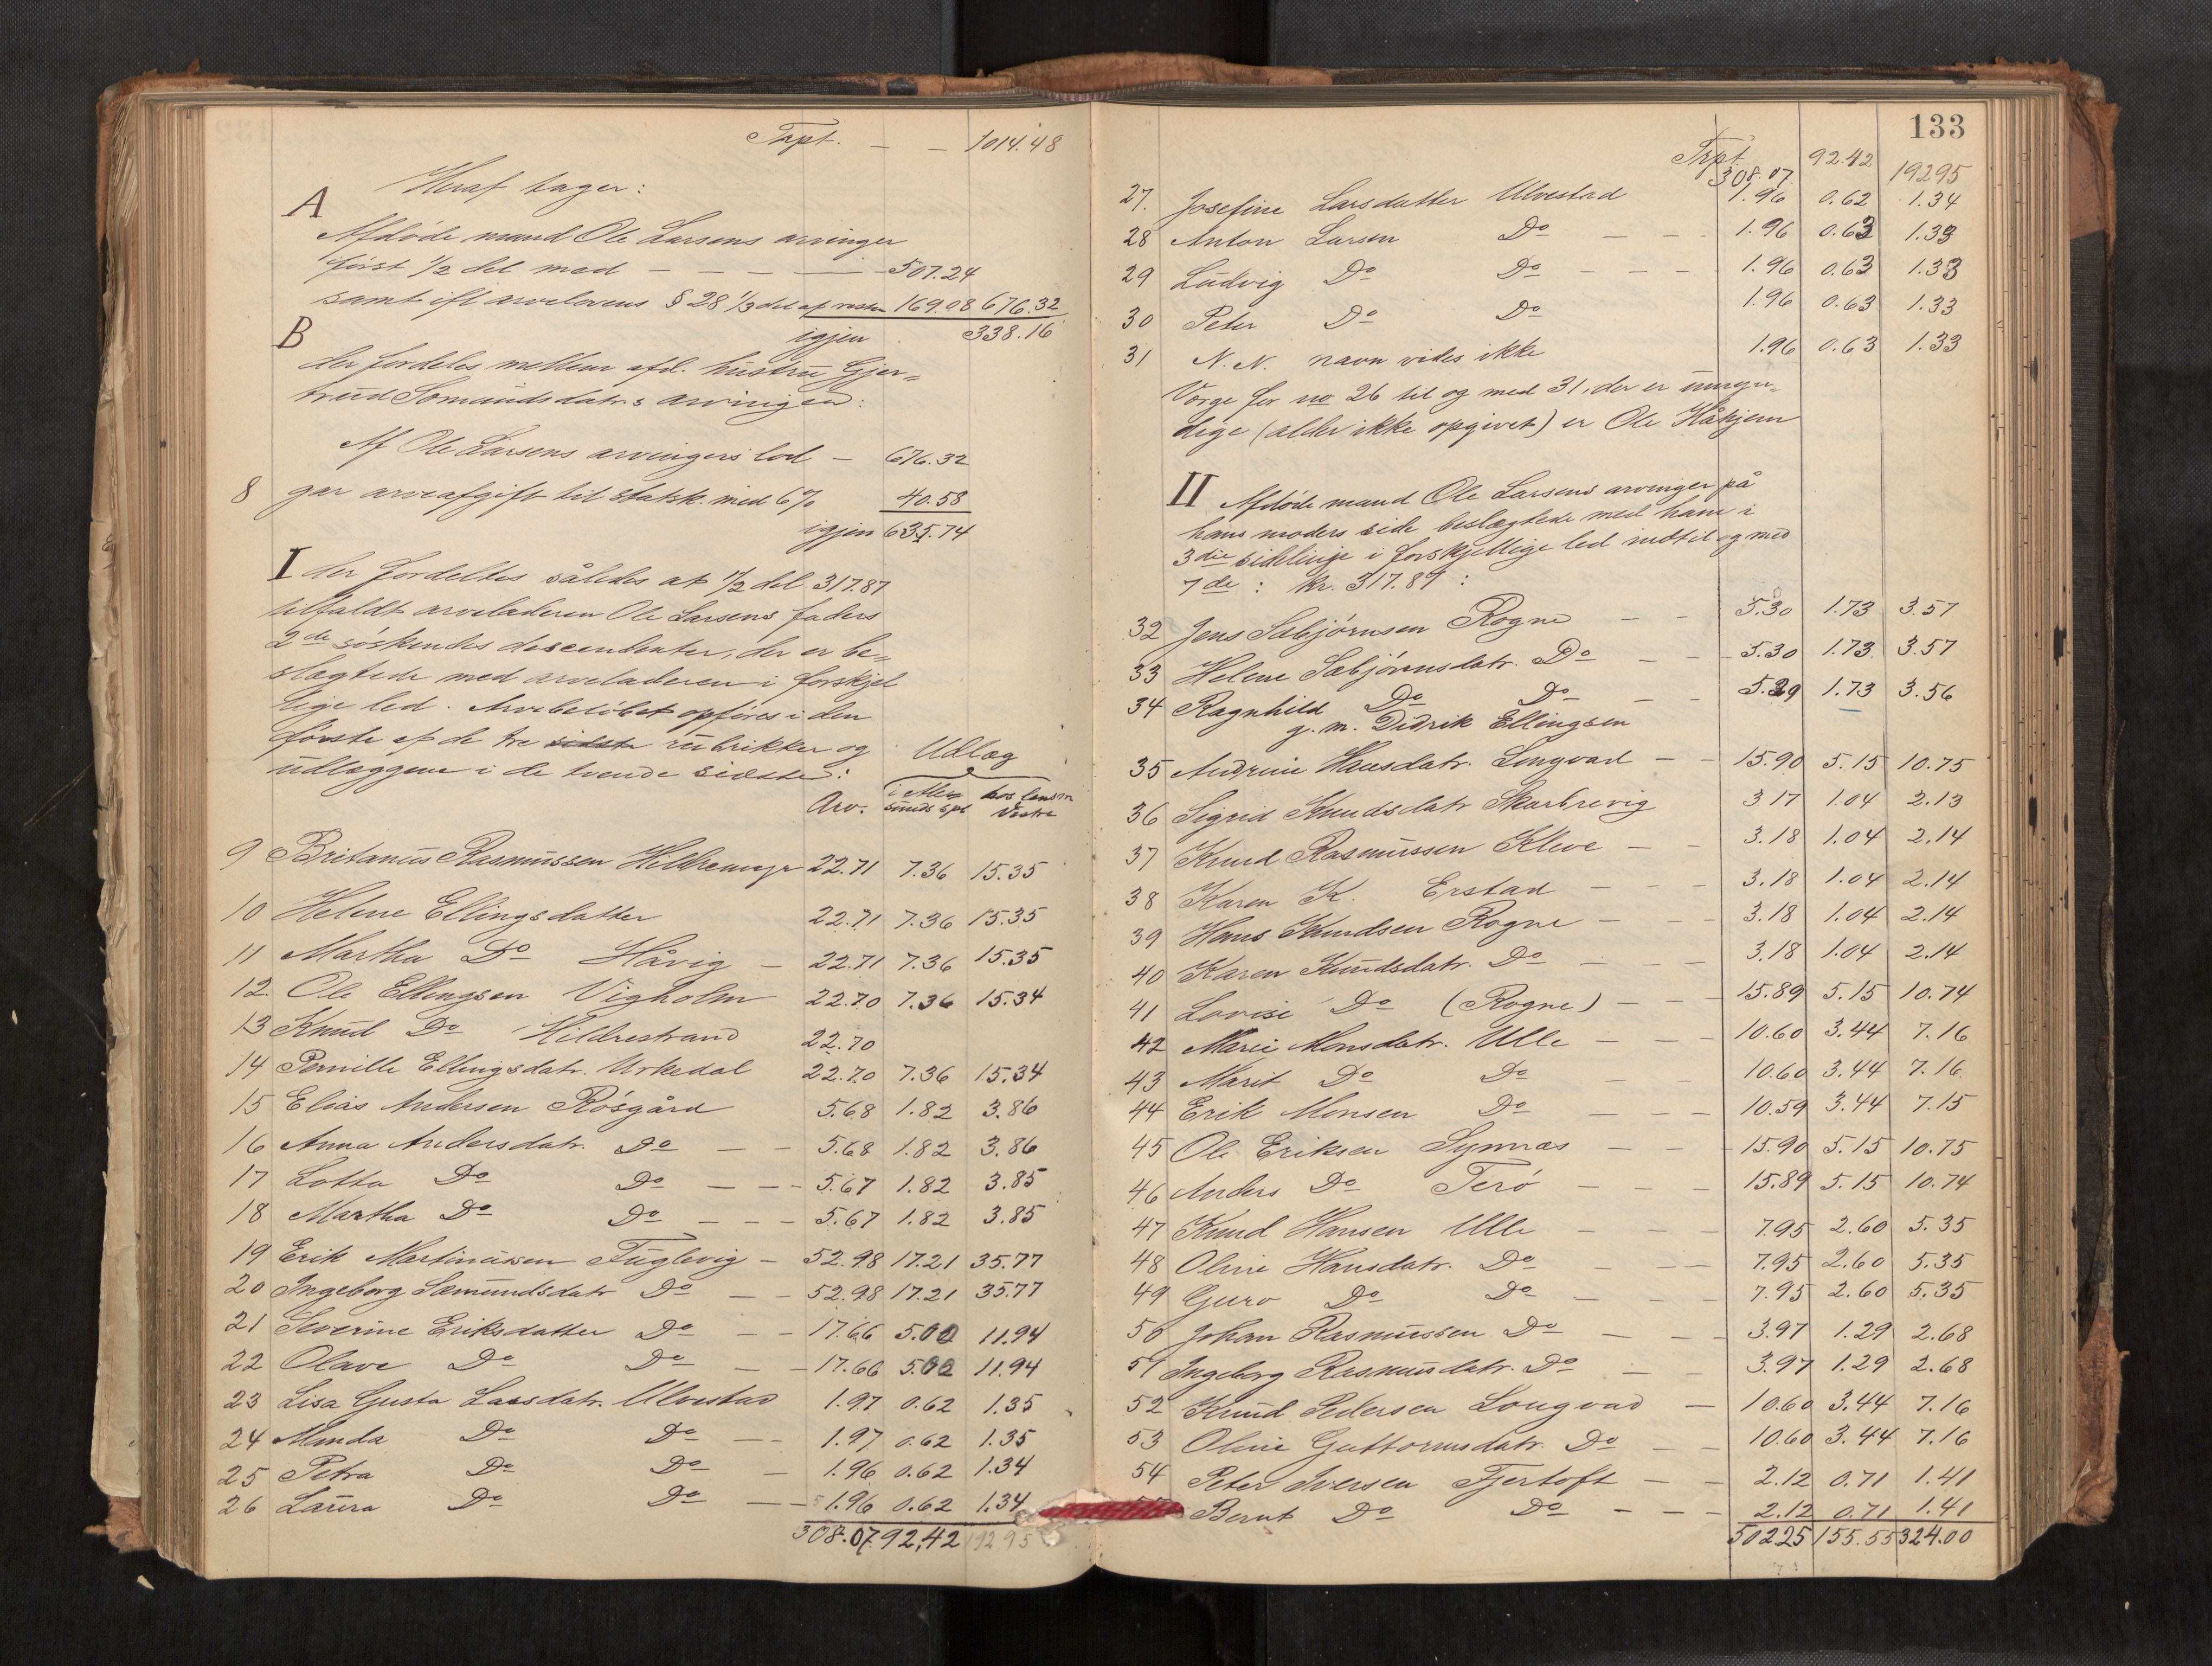 Trpt. — — 1014.48
Heraf tager:
A
Afdøde mand Ole Larsens arvinger
først 1/2 del med — — — — 507.24
samt ifl arvelovens § 28 1/3 del af resten 169.08 676.32
igjen 338.16
B
der fordeles mellem afd. hustru Gjer=
trud Somundsdatrs arvinger:
Af Ole Larsens arvingers lod — 676.32
8 gar arveafgift til statsk. med 6% 40.58
igjen 635.74
I der fordeltes således at 1/2 del 317.87
tilfaldt arveladeren Ole Larsens faders
2de søskendes descendenter, der er be=
slægtede med arveladeren i forskjel
lige led. Arvebeløbet opføres i den
første af de tre sidste rubrikker og
udlæggene i de tvende sidste:
Udlæg
Arv. i Ale sunds spb hos lensm Vestre
9 Britanus Rasmussen Hildremyr 22.71 7.36 15.35
10 Helene Ellingsdatter 22.71 7.36 15.35
11 Martha Do Håvig — 22.71 7.36 15.35
12. Ole Ellingsen Vigholm 22.70 7.36 15.34
13 Knud Do Hildrestrand 22.70
14 Pernille Ellingsdatr. Urkedal 22.70 7.36 15.34
15 Elias Andersen Rösgård 5.68 1.82 3.86
16 Anna Andersdatr. Do — — 5.68 1.82 3.86
17 Lotta Do Do — — — 5.67 1.82 3.85
18 Martha Do Do — — — 5.67 1.82 3.85
19 Erik Martinussen Fuglevig — 52.98 17.21 35.77
20 Ingeborg Sæmundsdatr Do — — 52.98 17.21 35.77
21 Severine Eriksdatter Do — — 17.66 5.00 11.94
22 Olave Do Do — — 17.66 5.00 11.94
23 Lisa Gusta Larsdatr. Ulvestad 1.97 0.62 1.35
24 Minda Do Do — — 1.97 0.62 1.35
25 Petra Do Do — 1.96 0.62 1.34
26 Laura Do Do — — 1.96 0.62 1.34
308.07 92,42 192.95
133
Trpt. 308.07. 92.42 192.95
27. Josefine Larsdatter Ulvestad 1.96 0.62 1.34
28 Anton Larsen Do — — — 1.96 0.63 1.33
29 Ludvig Do Do — — — 1.96 0.63 1.33
30 Peter Do Do 1.96 0.63 1.33
31 N. N. navn vides ikke 1.96 0.63 1.33
Værge for no 26 til og med 31, der er umyn=
dige (alder ikke opgivet) er Ole Håkjem
II Afdøde mand Ole Larsens arvinger på
hans moders side beslægtede med ham i
3die sidelinje i forskjellige led indtil og med
7de: kr. 317.87:
32 Jens Sæbjørnsen Rogne — — 5.30 1.73 3.57
33 Helene Sæbjørnsdatr. Do — — 5.30 1.73 3.57
34 Ragnhild Do Do — — 5.29 1.73 3.56
g. m. Didrik Ellingsen
35 Andrine Hansdatr. Longvad — — 15.90 5.15 10.75
36 Sigrid Knudsdatr Skarbrevig 3.17 1.04 2.13
37 Knud Rasmussen Kleve — — 3.18 1.04 2.14
38 Karen K. Erstad — — — 3.18 1.04 2.14
39 Hans Knudsen Rogne — — — 3.18 1.04 2.14
40 Karen Knudsdatr. Do — — — 3.18 1.04 2.14
41 Lovise Do (Rogne) — — — 15.89 5.15 10.74
42 Marie Monsdatr. Ulle — — — 10.60 3.44 7.16
43 Marit Do Do — — 10.60 3.44 7.16
44 Erik Monsen Do — — — 10.59 3.44 7.15
45 Ole Eriksen Synnæs — — — 15.90 5.15 10.75
46 Anders Do Terö — — — 15.89 5.15 10.74
47 Knud Hansen Ulle — — — 7.95 2.60 5.35
48 Oline Hansdatr. Do — — — 7.95 2.60 5.35
49 Guro Do Do — — — 7.95 2.60 5.35
50 Johan Rasmussen Do — — — 3.97 1.29 2.68
51 Ingeborg Rasmusdatr. Do — — 3.97 1.29 2.68
52 Knud Pedersen Longvad — 10.60 3.44 7.16
53 Oline Guttormsdatr. Do — — 10.60 3.44 7.16
54 Peter Iversen Fjertoft — — 2.12 0.71 1.41
Bernt Do Do — — — 2.12 0.71 1.41
502.25 155.55 324.00